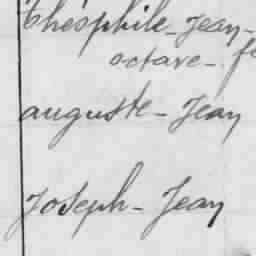 théophile - Jean -
octave -
auguste - Jean
Joseph - Jean